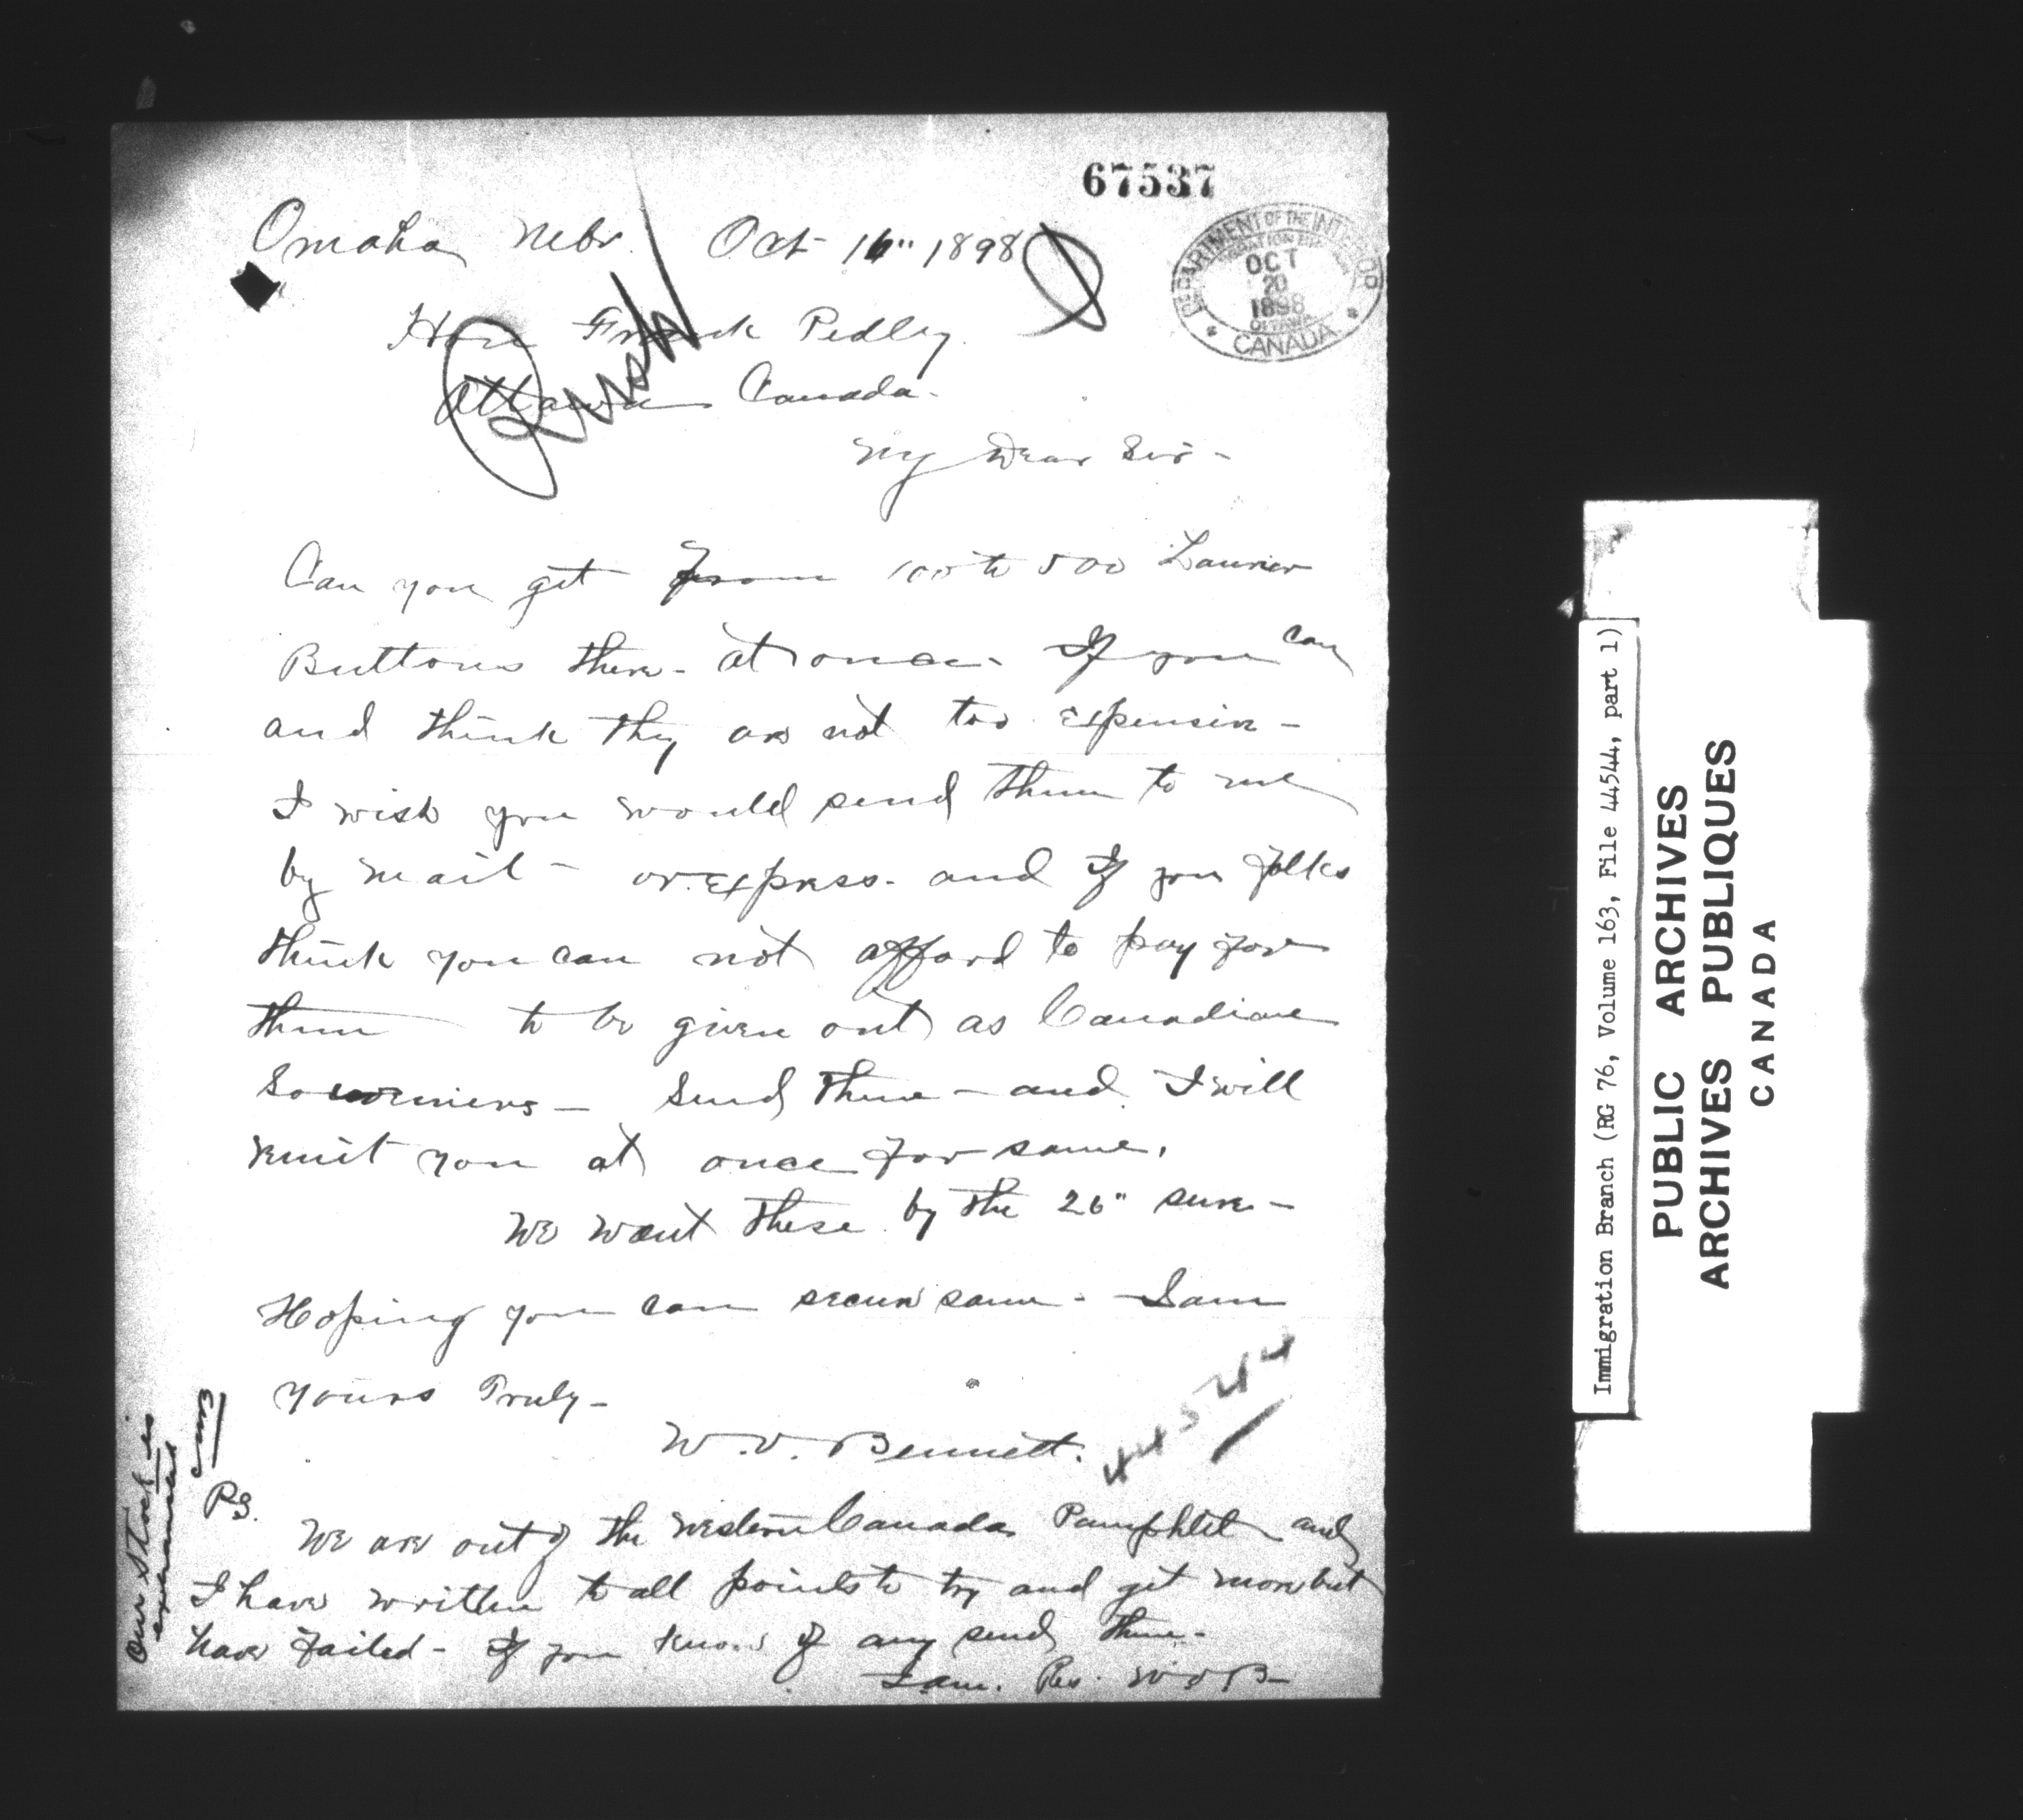 67537
Omaha Nebr. Oct 16" 1898
DEPARTMENT OF THE INTERIOR
OCT
20
1898
OTTAWA
CANADA
Hon Frank Pedley
Rush
Ottawa Canada.
My Dear Sir -
Can you get from 100 to 500 Laurier
Buttons there - at once - If you can
and think they are not too expensive -
I wish you would send them to me
by mail - or Express - and If you folks
think you can not afford to pay for
them to be given out as Canadian
Souveniers - Send them - and I will
remit you at once for same.
We want these by the 26" sure -
Hoping you can secure same - I am
Yours Truly -
W. V. Bennett.
44544
PS. We are out of the Western Canada Pamphlet and
I have written to all points to try and get more but
have failed - If you know of any send them -
I am. Res. W V B -
Our stock is
exhausted
Immigration Branch (RG 76, Volume 163, File 44544, part 1)
PUBLIC ARCHIVES
ARCHIVES PUBLIQUES
CANADA